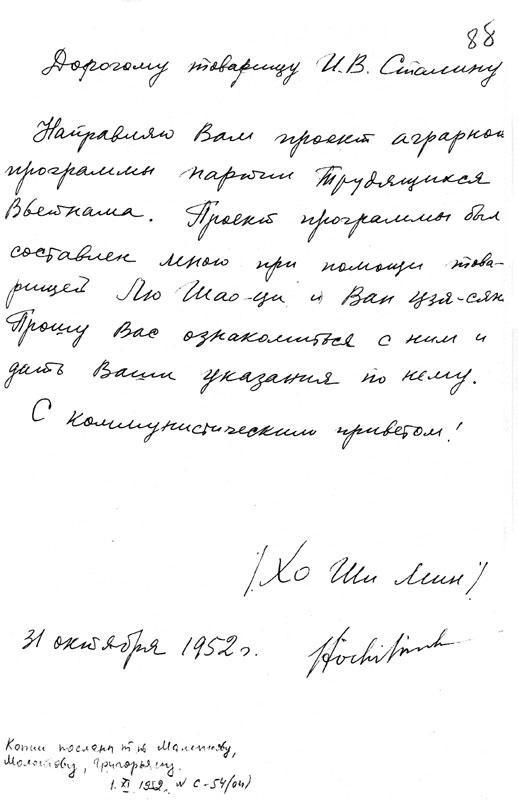 88
Дорогому товарищу И.В. Сталину
Направляю Вам проект аграрной
программы партии Трудящихся
Вьетнама. Проект программы был
составлен мною при помощи това-
рищей Лю Шао-ци и Ван Цзя-сян
Прошу Вас ознакомиться с ним и
дать Ваши указания по нему.
С коммунистическим приветом!
/Хо Ши Мин/
31 октября 1952 г.
Hochiminh
Копии посланы т.т. Маленкову,
Молотову, Григорьяну.
1.XI.1952. N С-54(оч)